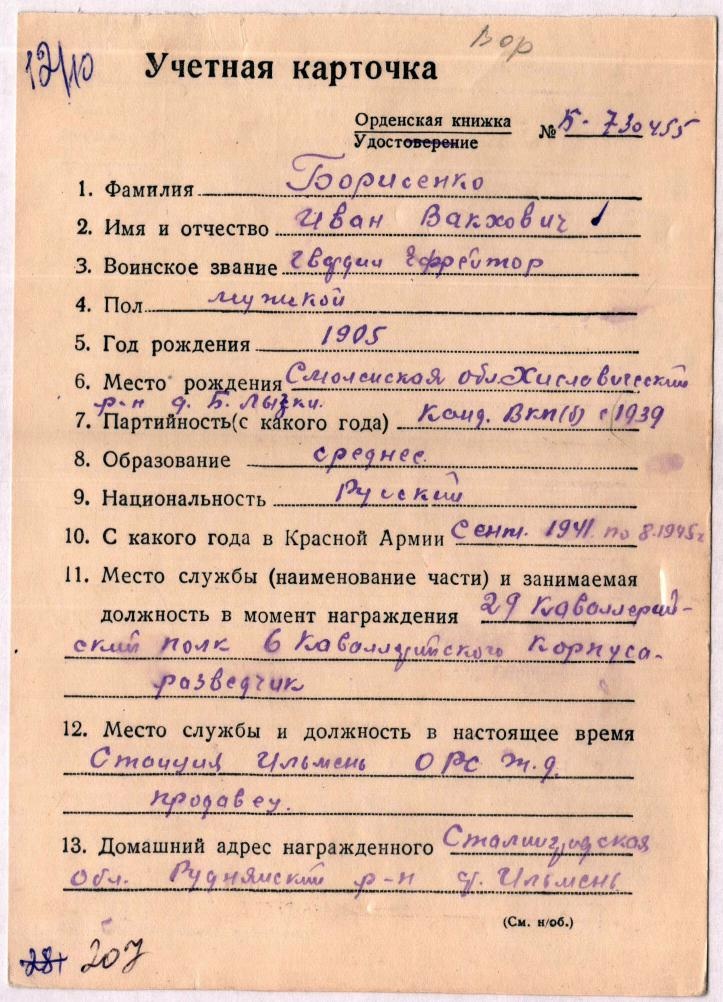 12/10
Вор
Учетная карточка
Орденская книжка
Удостоверение
№ Б-730455
1. Фамилия Борисенко
2. Имя и отчество Иван Вакхович
3. Воинское звание гвардии ефрейтор
4. Пол мужской
5. Год рождения 1905
6. Место рождения Смоленская обл. Хиславический
р-н д. Б. Лызки.
7. Партийность (с какого года) Канд. ВКП(б) с 1939
8. Образование среднее.
9. Национальность Русский
10. С какого года в Красной Армии Сент. 1941. по 8.1945г
11. Место службы (наименование части) и занимаемая
должность в момент награждения 29 Каваллерий-
ский полк 6 Каваллерийского Корпуса-
разведчик
12. Место службы и должность в настоящее время
Станция Ильмень ОРС ж.д.
продавец.
13. Домашний адрес награжденного Сталинградская
обл. Руднянский р-н ст. Ильмень
(См. н/об.)
281 207